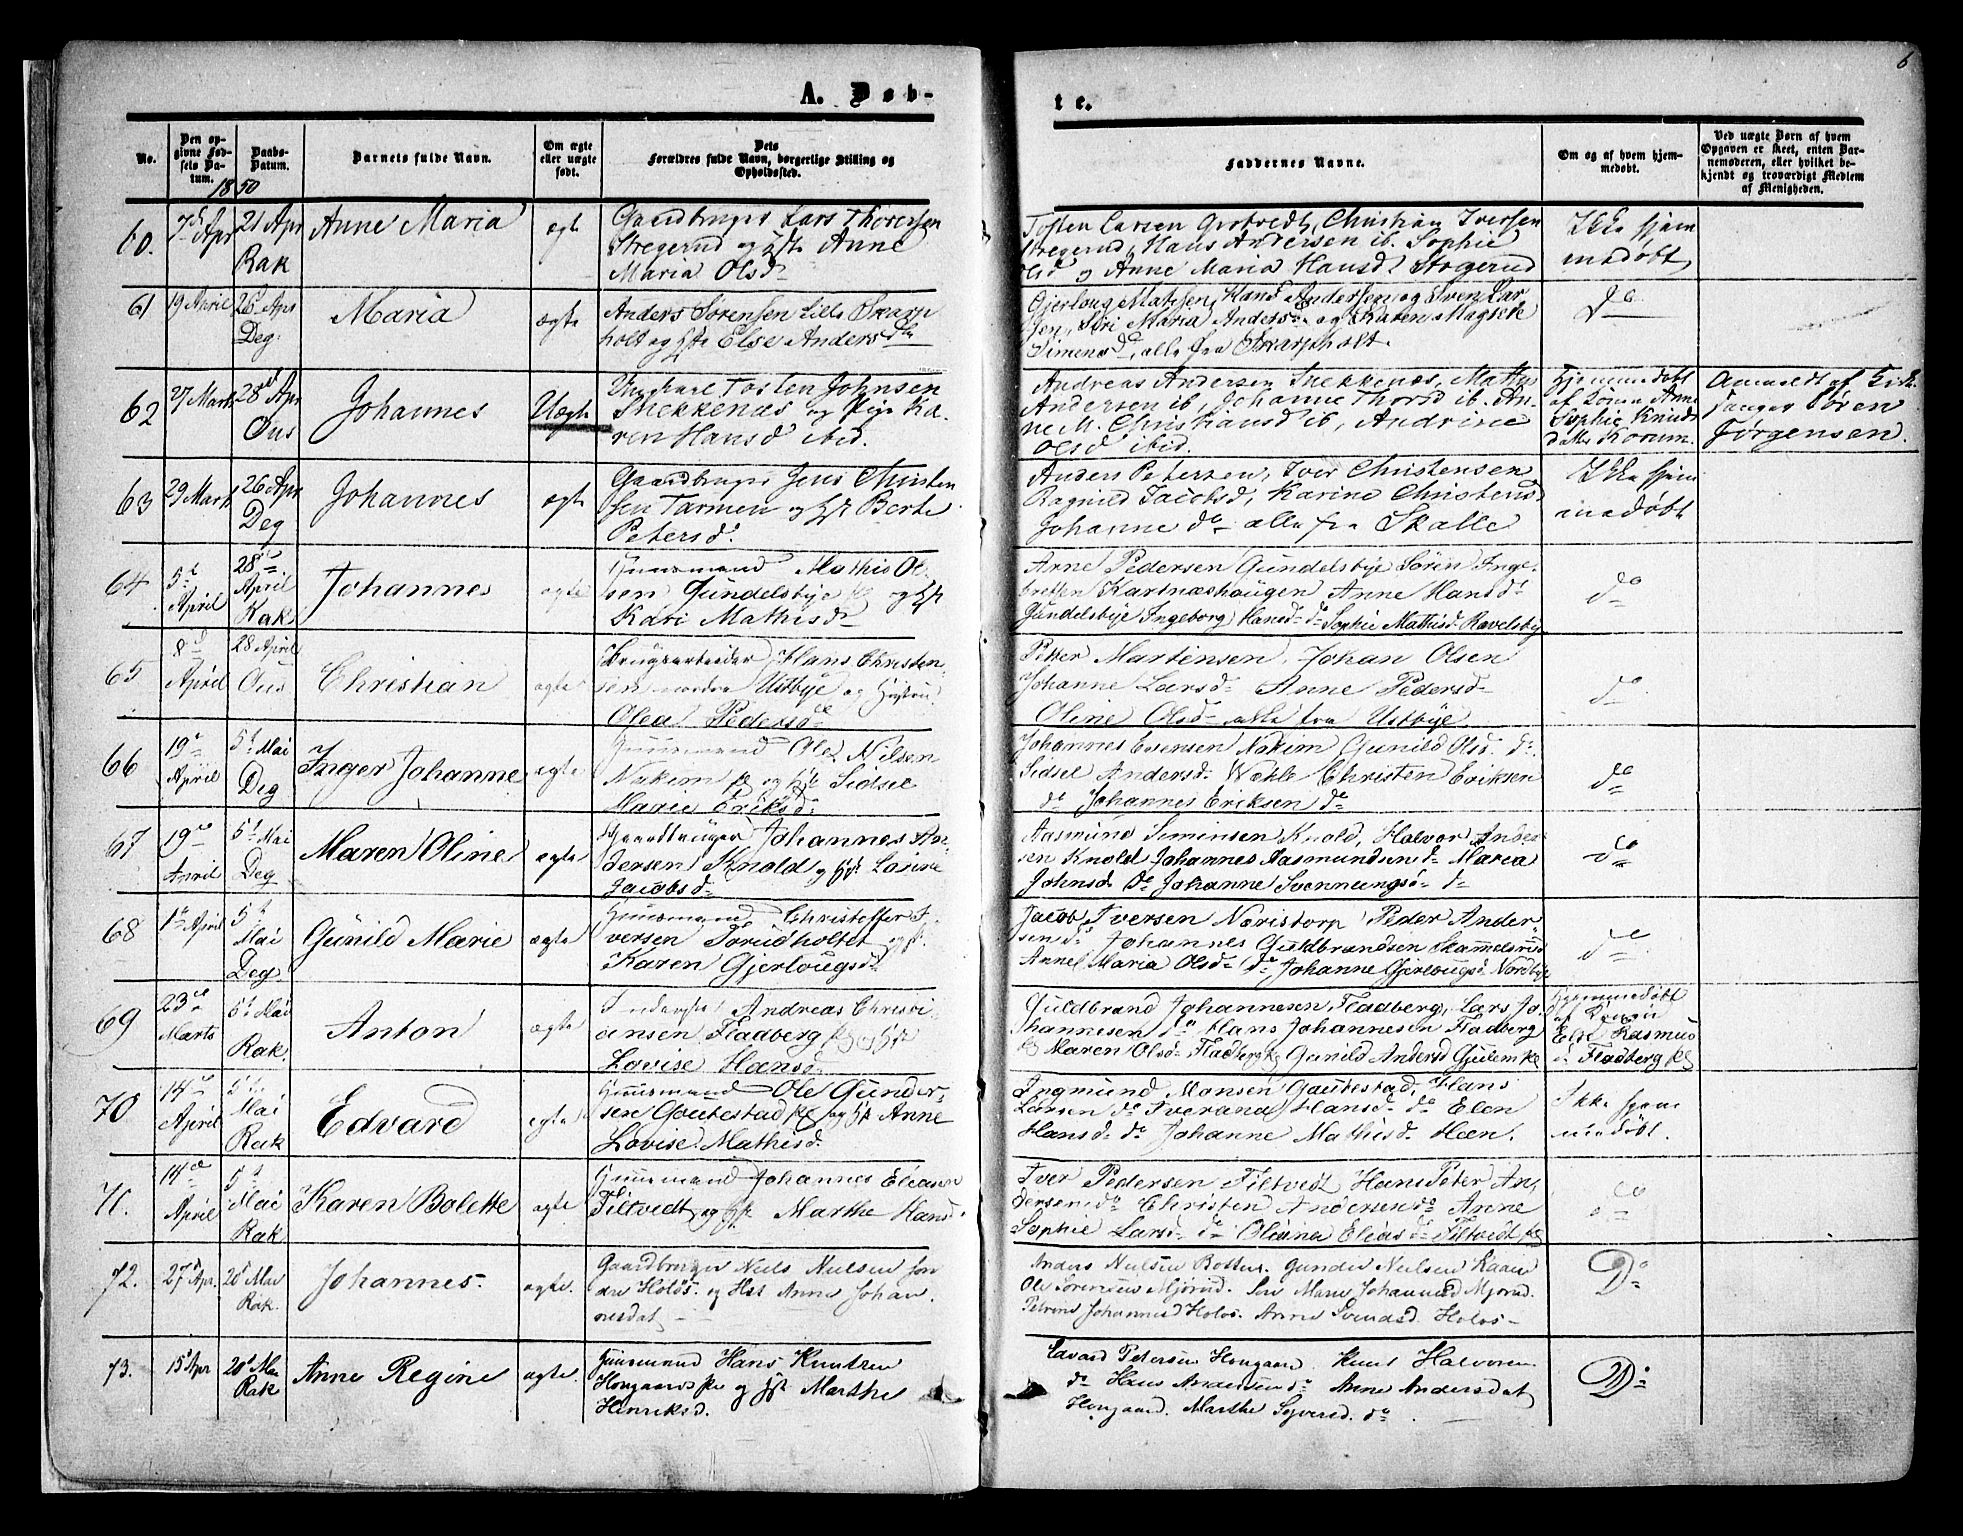 6
A. Døb-
te.
No.
Den op-
givne Fød-
sels Da-
tum.
Daabs-
Datum.
1850
Barnets fulde Navn.
Om ægte
eller uægte
født.
Dets
Forældres fulde Navn, borgerlige Stilling og
Opholdssted.
Faddernes Navne.
Om og af hvem hjem-
medøbt.
Ved uægte Børn af hvem
Opgaven er skeet, enten Bar-
nemoderen, eller hvilket be-
kjendt og troværdigt Medlem
af Menigheden.
60. 7de Apr 21 Apr Rak Anne Maria ægte
Gaardbruger Lars Thoresen
Stregerud og Hst Anne
Maria Olsd
Tosten Larsen Grotvedt, Christian Iversen
Stregerud, Hans Andersen ib. Sophie
Olsd og Anne Maria Hansd Stregerud
Ikke hjem
medøbt
61 19 April 26 Apr Deg. Maria ægte
Anders Sørensen Lille Skarp
holt og Hst Else Andersd
Gjerloug Matisen, Hans Andersen og Sven Lar
sen, Siri Maria Andersd og Karen
Simensd, alle fra Skarpholt.
do
62 27 Marts 28 Apr Ous Johannes Uægte
Ungkarl Tosten Johnsen
Snekkenæs og Pige Ka-
ren Hansd ibid.
Andreas Andersen Snekkenæs, Matth
Andersen ib, Johanne Thorsd ib. An-
ne M. Christiansd ib, Andrine
Olsd ibid.
Hjemmedøbt
af Anne
Sophie Knuds
datter Korum.
Anmeldt af Kirke
sanger Søren
Jørgensen.
63 29 Marts 26 Apr Deg Johannes ægte
Gaardbruger Jens Christen
sen Tarmen og Hst Berte
Petersd.
Anders Petersen, Iver Christensen
Ragnild Jacobsd, Karine Christensd
Johanne do alle fra Skalle
Ikke hjem
medøbt
64 5te April 28de April Rak Johannes ægte
Huusmand Mathis Ol-
sen Gundelsbye og Hst
Kari Mathisd
Arne Pedersen Gundelsbye Søren Inge-
bretsen Kartnæshougen Anne Hansd
Gundelsbye Ingeborg Hansd do Sophie Mathisd Ravelsbye
do
65 8de April 28 April Ous Christian ægte
Brugsarbeider Hans Christen-
sen nordre Ustbye og Hustru
Olea Pedersd
Peter Martinsen, Johan Olsen
Johanne Larsd Anne Pedersd
Oline Olsd alle fra Ustbye
do
66 19de April 5te Mai Deg Inger Johanne ægte
Huusmand Ole Nilsen
Nakim og Hst Sidsel
Marie Eriksd
Johannes Evensen Nakim Gunild Olsd do
Sidsel Andersd Wæhle Christen Eriksen
do Johannes Eriksen do
do
67 19de April 5te Mai Deg Maren Oline ægte
Gaardbruger Johannes An-
dersen Knold og Hst Losine
Jacobsd
Aasmund Simensen Knold, Halvor Ander
sen Knold Johannes Aasmundsen do Maria
Johnsd do Johanne Svenningsd do
do
68 1te April 5te Mai Deg Gunild Marie ægte
Huusmand Christoffer I-
versen Torudholtet og Hst
Karen Gjerlougsd
Jacob Iversen Næristorp Peder Ander-
sen do Johannes Guldbrandsen Skammelsrud
Anne Maria Olsd do Johanne Gjerlougsd Nordbye
do
69 23de Marts 5te Mai Rak. Anton ægte
Andreas Christi-
ansen Fladberg og Hst
Lovise Hansd
Guldbrand Johannesen Fladberg, Lars Jo-
hannesen do Hans Johannesen Fladberg
Maren Olsd Fladberg Gunild Andersd Gulem
Hjemmedøbt
af
Rasmus
Fladberg
70 14de April 5te Mai Rak Edvard ægte
Huusmand Ole Gunder-
sen Gautestad og Hst Anne
Lovise Mathisd
Ingmund Monsen Gautestad, Hans
Larsen do Iverana Hansd do Elen
Hansd do Johanne Mathisd Heen.
Ikke hjem
medøbt.
71. 14de April 5te Mai Rak Karen Bolette ægte
Huusmand Johannes Eliasen
Filtvedt og Hst Marthe Hansd
Iver Pedersen Filtvedt Hans Peter An-
dersen do Christen Andersen do Anne
Sophie Larsd do Olsina Eliasd Filtvedt
do
72. 27de Apr. 20de Mai Rak. Johannes. ægte.
Gaardbruger Niels Nielsen son
dre Holøs. og Hst Anne Johan
nesdat
Anders Nielsen Gunder Nielsen Kaare
Ole Sørensen Mjørud. Maren Johannesd Mjørud.
Petrine Johannesd Holøs. Anne Svendsd Holøs
Do
73. 15de Apr 20de Mai Rak Anne Regine ægte.
Huusmand Hans Knutsen
Hougaard og Hst Marthe
Henriksd.
Edvard Petersen Hougaard. Knut Halvorsen
do Hans Andersen do Anne Andersdat
Hougaard. Marthe Syversd. do
Do